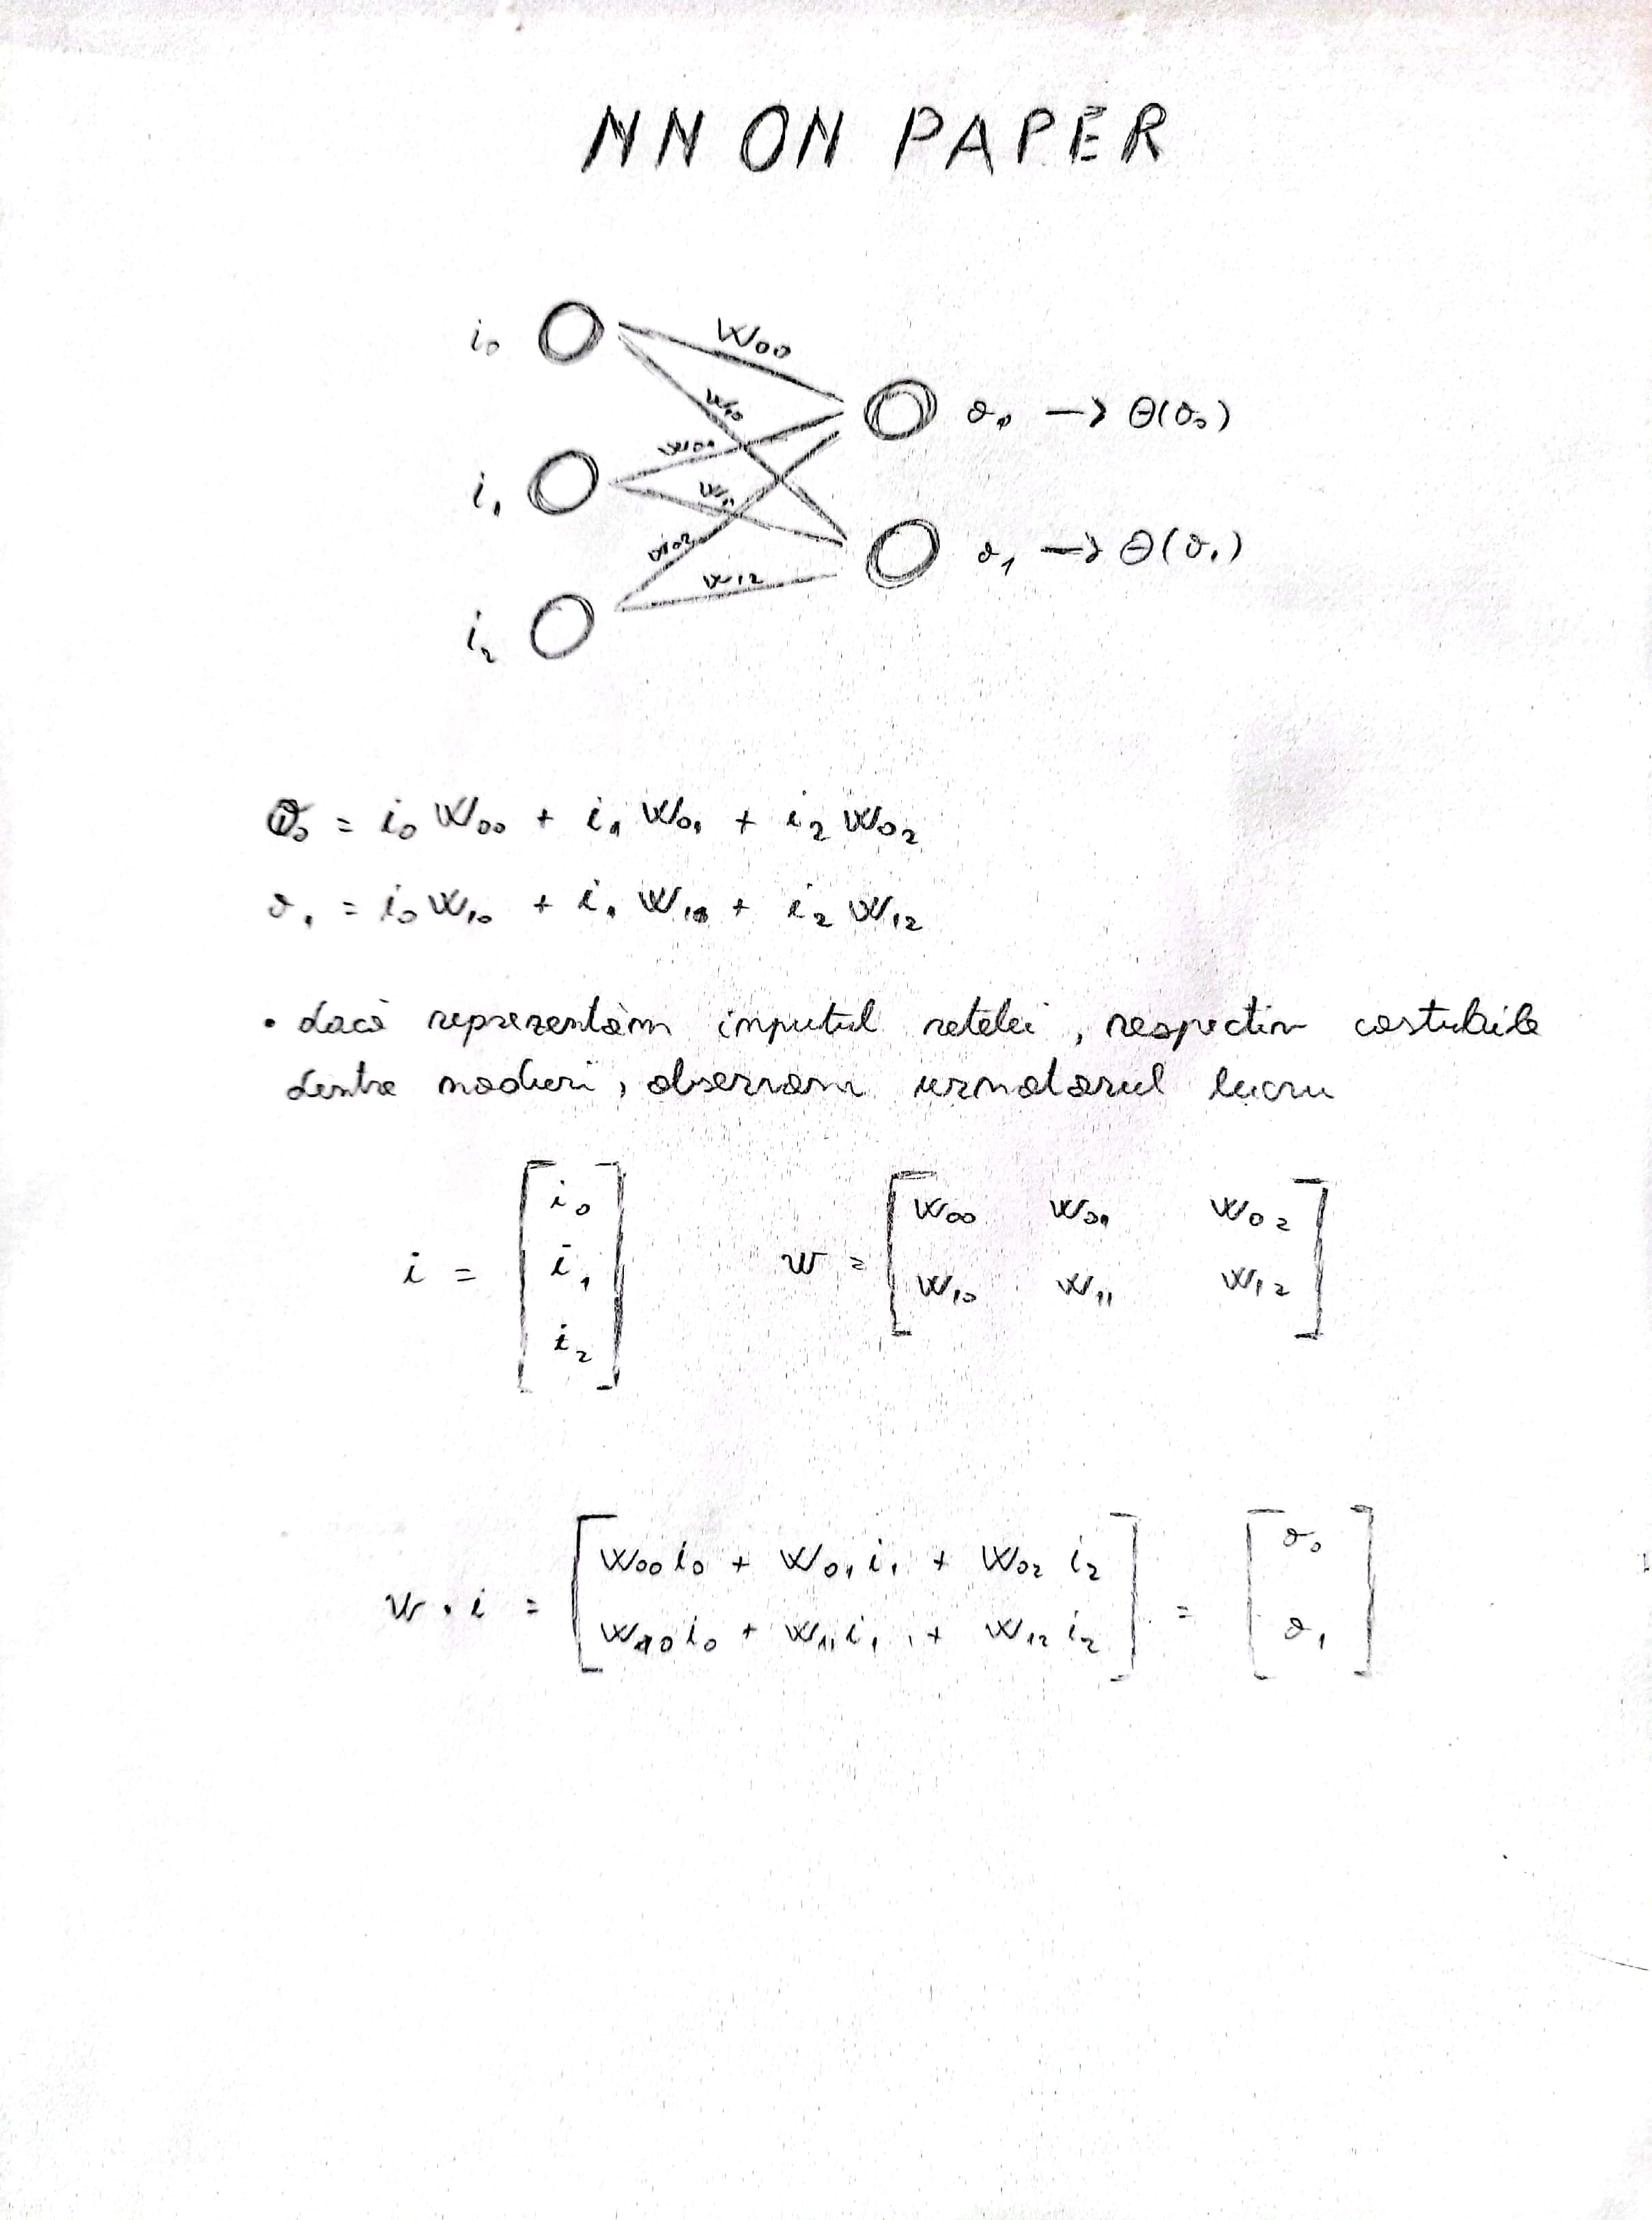 NN ON PAPER
i₀ W₀₀
W₁₀ σ₀ → Θ(σ₀)
W₀₁
i₁ W₁₁
W₀₂ σ₁ → Θ(σ₁)
W₁₂
i₂
σ₀ = i₀ W₀₀ + i₁ W₀₁ + i₂ W₀₂
σ₁ = i₀ W₁₀ + i₁ W₁₁ + i₂ W₁₂
• dacă reprezentăm inputul retelei, respectiv costurile
dintre noduri, observam urmatorul lucru
i = [i₀ i₁ i₂] w = [W₀₀ W₀₁ W₀₂
W₁₀ W₁₁ W₁₂]
w · i = [W₀₀ i₀ + W₀₁ i₁ + W₀₂ i₂
W₁₀ i₀ + W₁₁ i₁ + W₁₂ i₂] = [σ₀ σ₁]